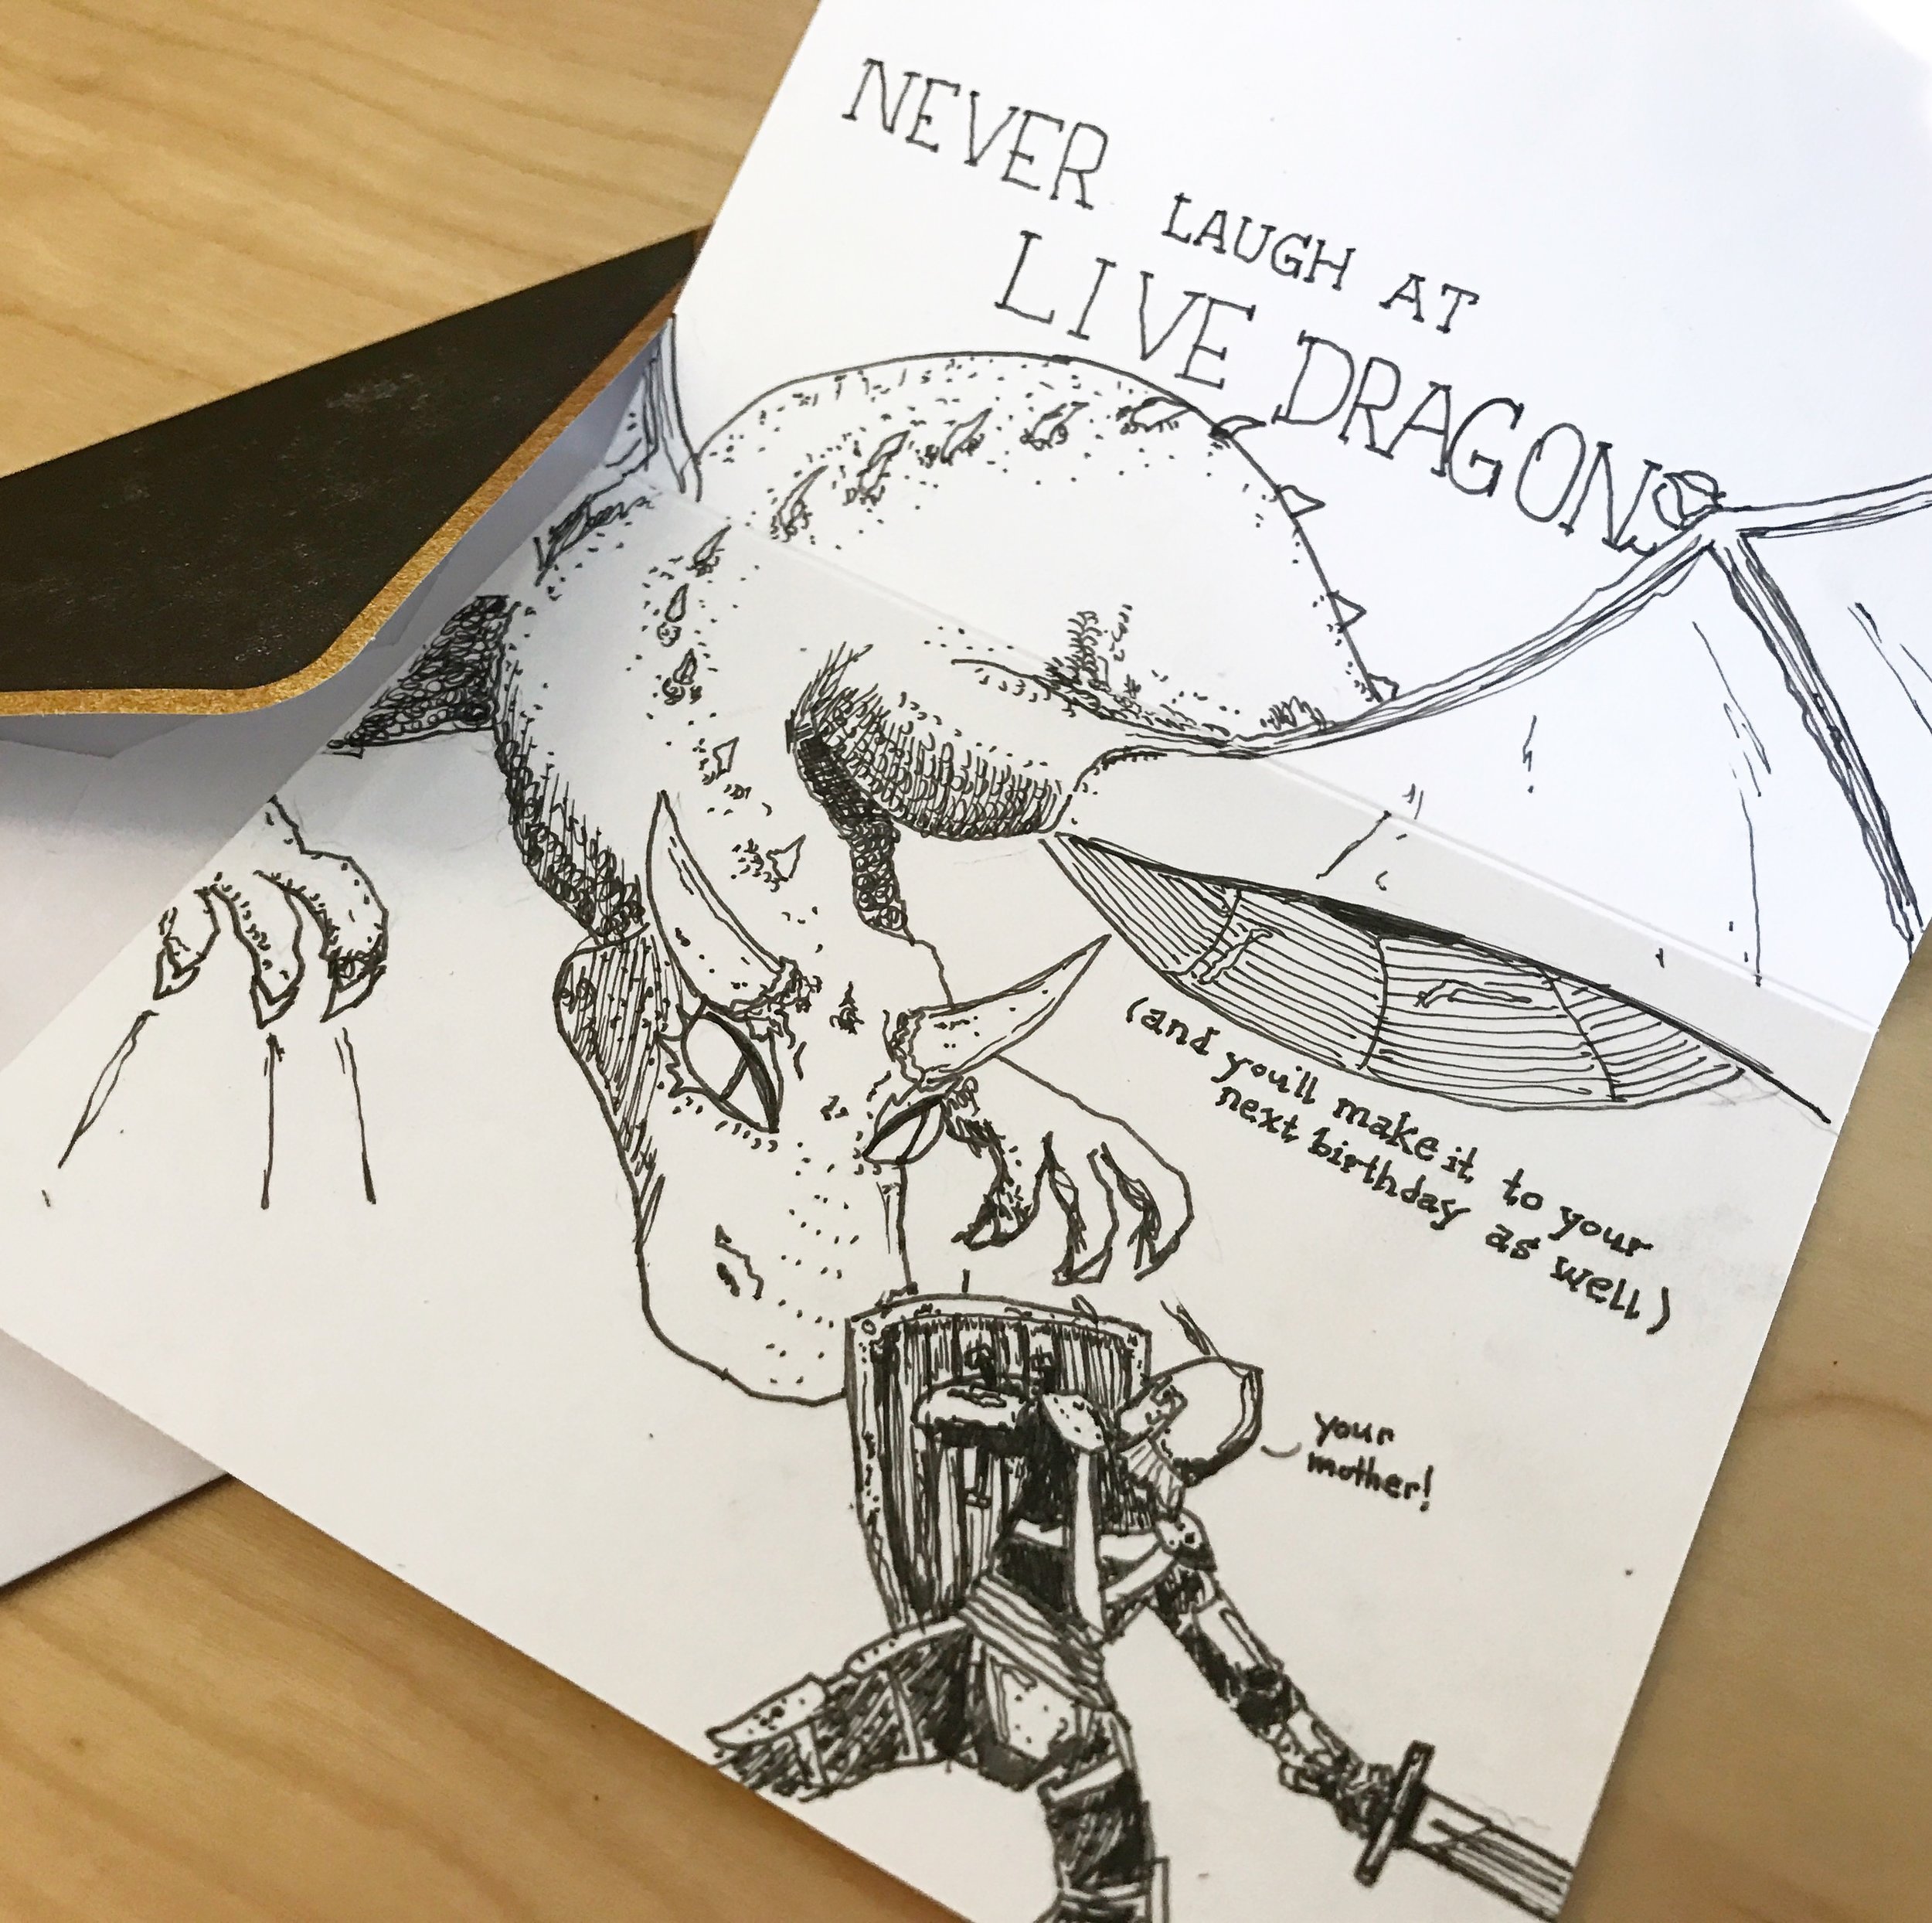 NEVER LAUGH AT
LIVE DRAGONS
(and you'll make it to your
next birthday as well)
your
mother!